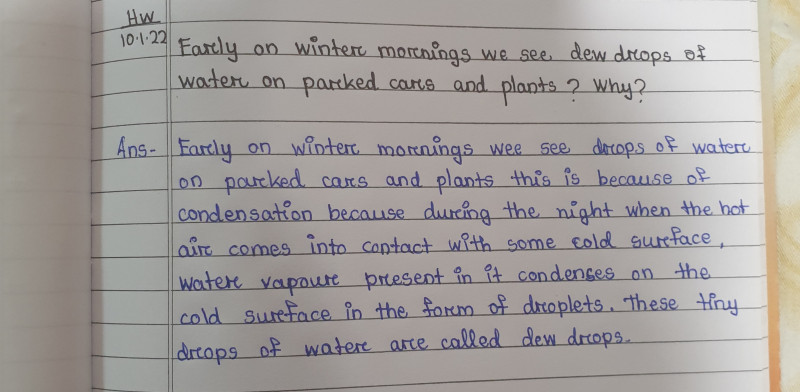 HW
10.1.22
Early on winter mornings we see dew drops of
water on parked cars and plants? Why?
Ans- Early on winter mornings wee see drops of water
on parked cars and plants this is because of
condensation because during the night when the hot
air comes into contact with some cold surface,
water vapoure present in it condenses on the
cold surface in the form of droplets. These tiny
drops of water are called dew drops.